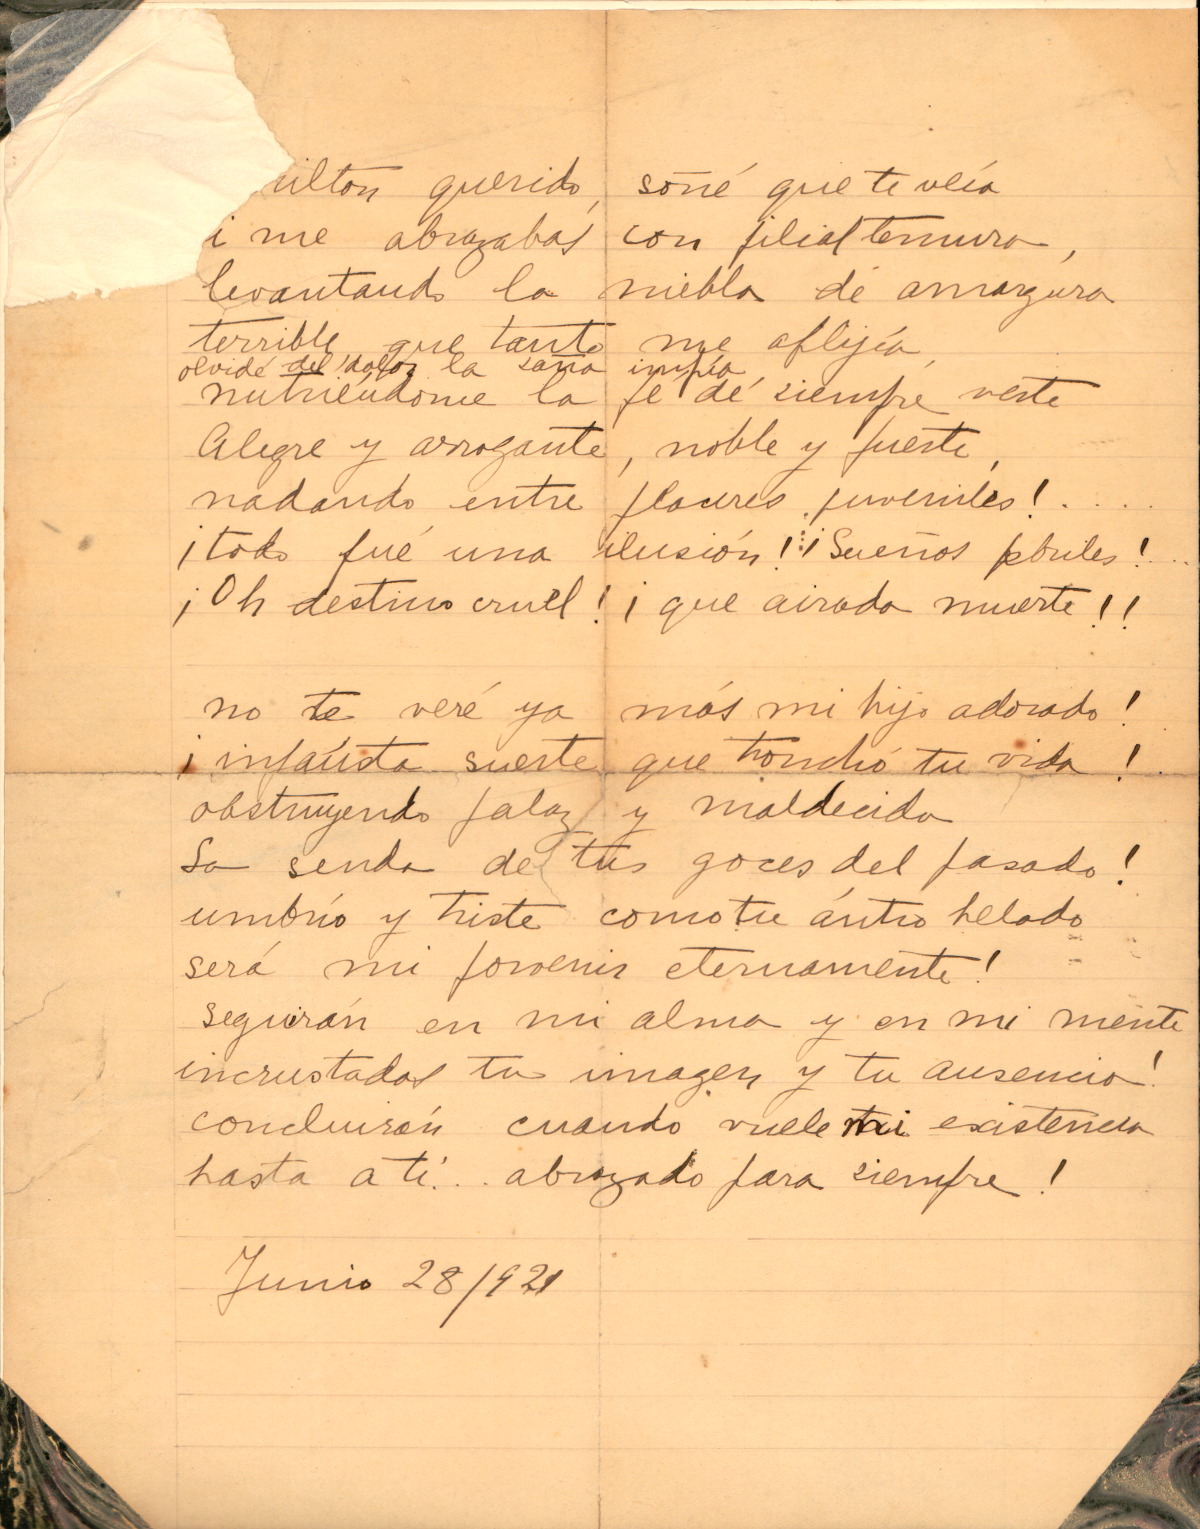 ilton querido, soñé que te veía
i me abrazabas con filial ternura,
levantando la niebla dé amargura
terrible que tanto me aflijía,
olvidé del dolor la saña impía
nutriéndome la fe dé siempre verte
Alegre y arrogante, noble y fuerte,
nadando entre placeres juveniles!....
¡todo fué una ilusión! ¡Sueños febriles!...
¡Oh destino cruel! ¡que airada muerte!!
no te veré ya más mi hijo adorado!
¡infaústa suerte que tronchó tu vida!
obstruyendo falaz y maldecida
La senda de tus goces del pasado!
umbrío y triste como tu ántro helado
será mi porvenir eternamente!
seguirán en mi alma y en mi mente
incrustadas tu imagen y tu ausencia!
concluirán cuando vuele mi existencia
hasta a tí... abrazado para siempre!
Junio 28/921